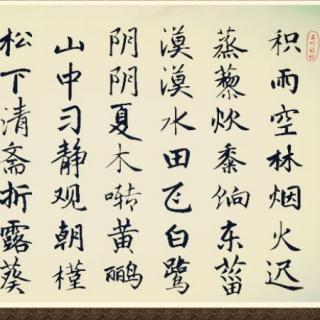 积雨空林烟火迟
蒸藜炊黍饷东菑
漠漠水田飞白鹭
阴阴夏木啭黄鹂
山中习静观朝槿
松下清斋折露葵